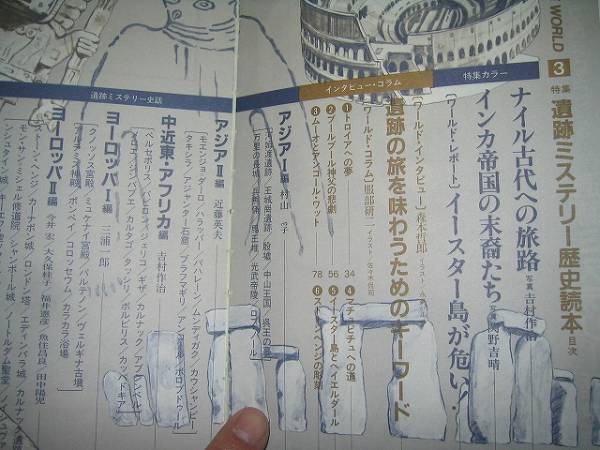 WORLD
3
特集
遺跡ミステリー歴史読本
目次
特集カラー
ナイル古代への旅路
写真 吉村作治
インカ帝国の末裔たち
写真 関野吉晴
[ワールド・レポート]
イースター島が危い!
インタビュー・コラム
[ワールド・インタビュー] 森本哲郎
遺跡の旅を味わうためのキーワード
[ワールド・コラム] 服部研二
イラスト・佐々木侃司
❶トロイアへの夢
34
❷ブールブール神父の悲劇
56
❸ムーオとアンコール・ワット
78
❹マチュピチュへの道
❺イースター島とヘイエルダール
❻ストーンヘンジの彫刻
遺跡ミステリー史話
アジアⅠ編
アジアⅡ編 近藤英夫
[モエンジョダーロ/ハラッパー/バハレーン/ムンディガク/カウシャンビー/
タキシラ/アジャンター石窟/ブラフマギリ/アンコール/ボロブドゥール]
中近東・アフリカ編 吉村作治
ペルセポリス/バビロン/ジェリコ/ギザ/カルナック/アブシンベル/
メロエ/ジンバブエ/カルタゴ/タッシリ/ボルビリス/カッパドキア]
ヨーロッパⅠ編 三浦一郎
[クノッソス宮殿/ミュケナイ宮殿/パルテノン/ヴェルギナ古墳/
アルテミス神殿/ポンペイ/コロッセウム/カラカラ浴場
ヨーロッパⅡ編 今井宏/大久保桂子/福井憲彦/魚住昌良/田中陽児
[ストーンヘンジ/カーナボン城/ロンドン塔/エディンバラ城/カルナック遺跡
モン・サン・ミシェル修道院/シャンボール城/ノートルダム聖堂/